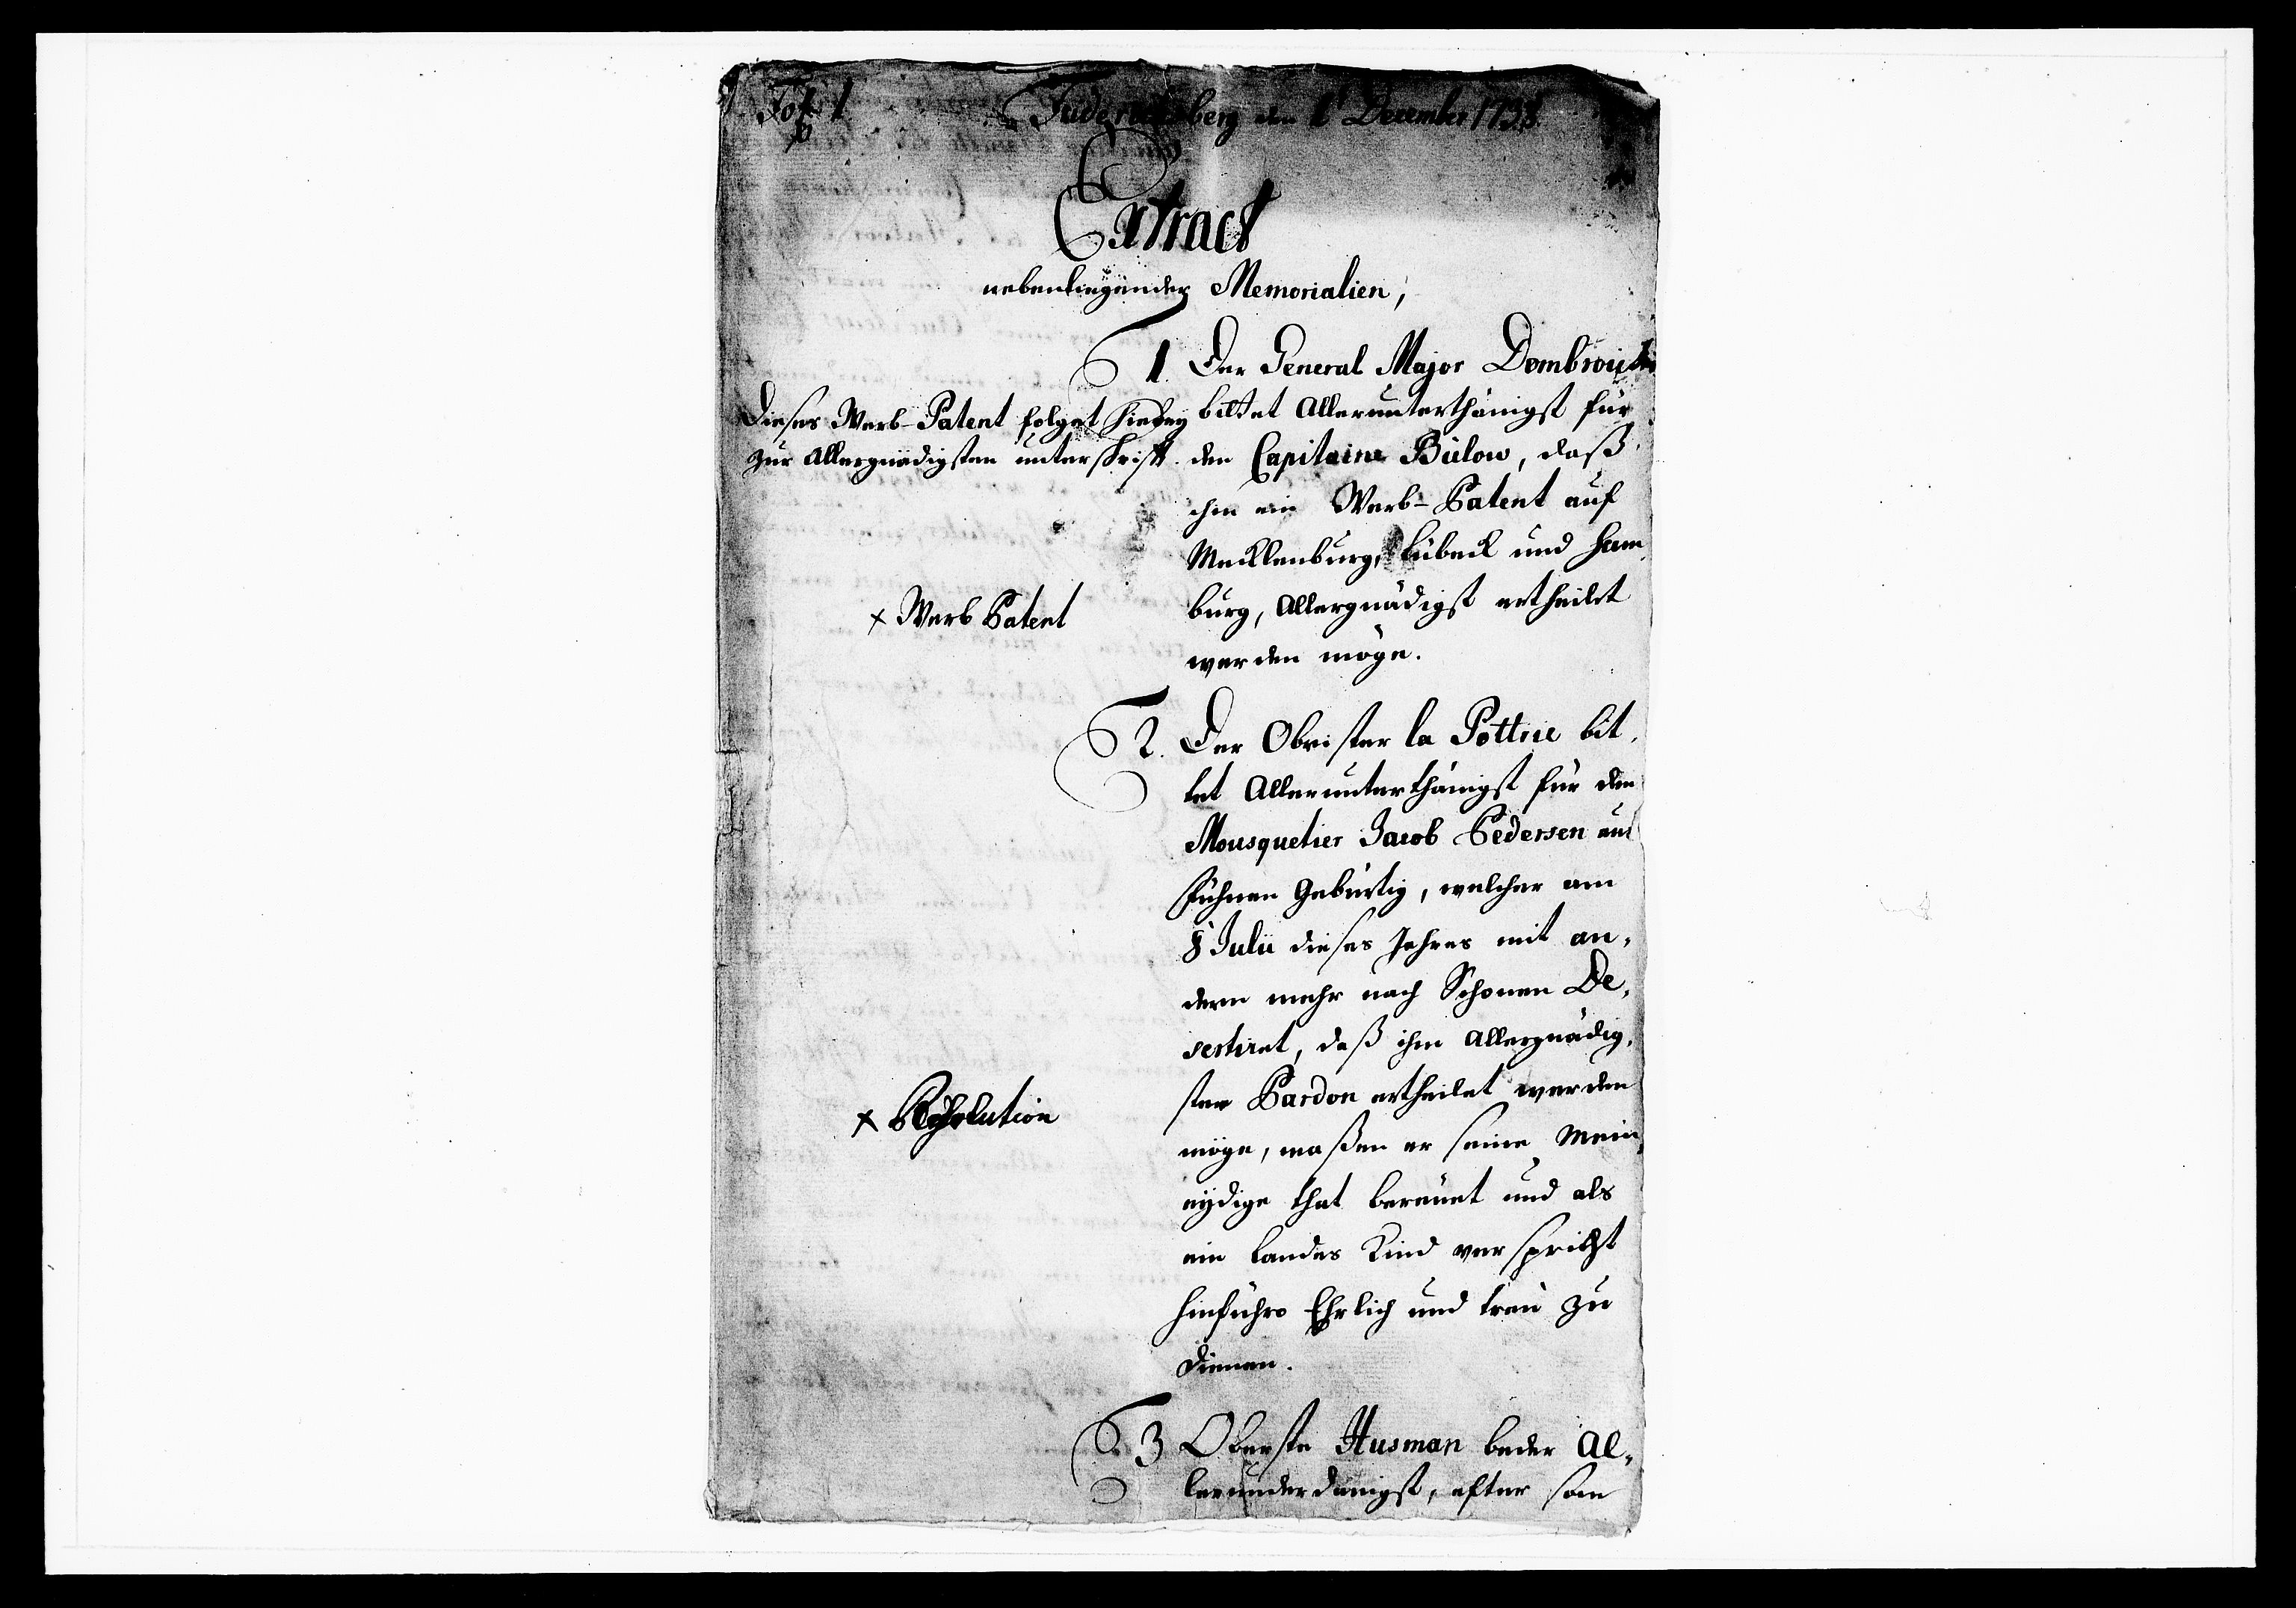 Fol: 1
Friderichsberg den 1t December 1738.
Extract
nebenliegender Memorialien,
1. Der General Major Dombroick
bittet Allerunterthänigst für
den Capitaine Bülow, daß
ihm ein Werb-Patent auf
Mecklenburg, Lübeck und Ham
burg, Allergnädigst ertheilet
werden möge.
Dieses Werb-Patent folget hiebey
zur Allergnädigsten unterschrifft.
x Werb Patent
2. Der Obrister la Pottrie bit,
tet Allerunterthänigst für den
Mousquetier Jacob Pedersen aus
Fühnen Gebürtig, welcher am
8t Julii dieses Jahres mit an,
dern mehr nach Schonen De,
sertiret, daß ihm Allergnädig,
ster Pardon ertheilet werden
möge, maßen er seine Mein,
eydige that bereuet und als
ein Landes Kind verspricht
hinführo Ehrlich und treu zu
dienen.
x Resolution
3 Oberste Husman beder Al,
lerunderdanigst, efter som